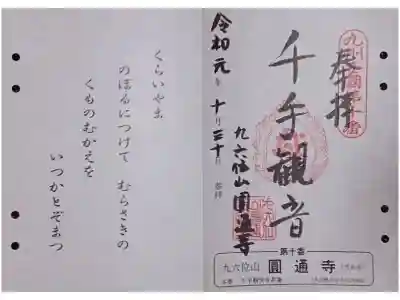 九州西国第十番
奉拝
千手観音
九六位山圓通寺
令和元年十月三十日
第十番
九六位山 圓通寺
くらいやま
のぼるにつけて むらさきの
くものむかえを
いつかとぞまつ